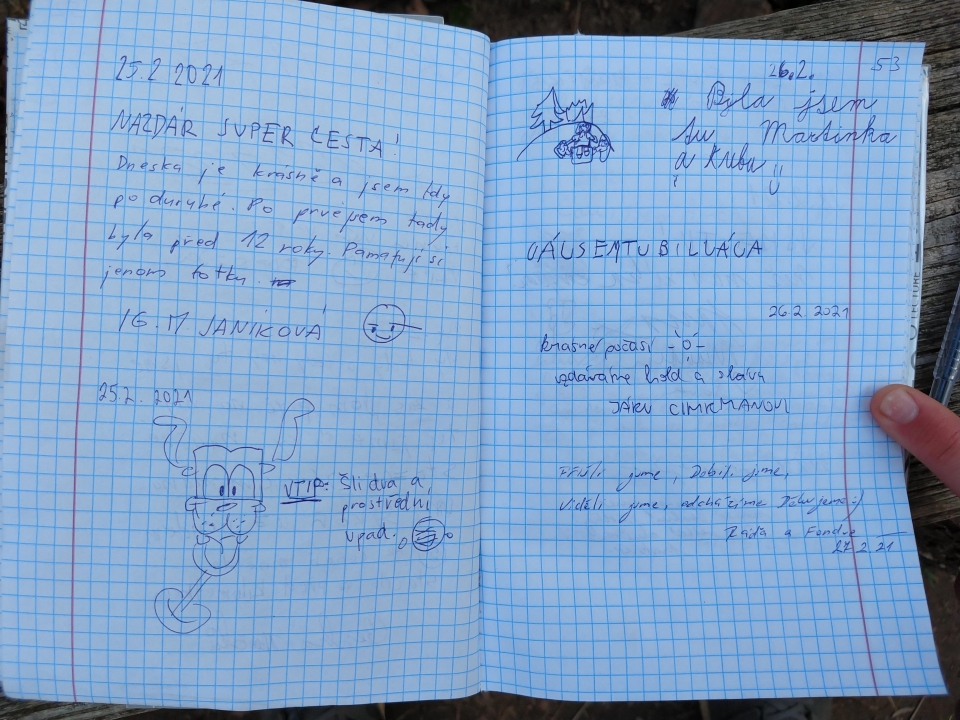 25.2 2021
NAZDÁR SUPER CESTA!
Dneska je krásně a jsem tdy
po duruhé. Po prvéjsem tady
byla před 12 roky. Pamatuji si
jenom fotku.
M JANÍKOVÁ
25.2. 2021
VTIP: Šli dva a
prostřední
upad.
53
26.2.
Byla jsem
tu Martinka
a Kuba
26.2 2021
krásné počasí
vzdáváme hold a slávu
JÁRU CIMRMANOVI
jsme, Dobili jsme,
Viděli jsme, odcházíme Děkujeme :)
Zajda a
27.2 21